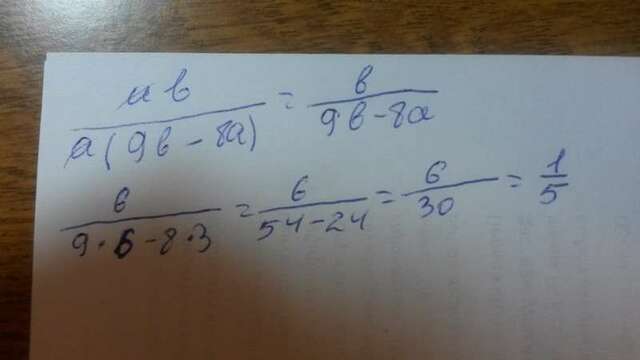 ab / a(9b - 8a) = b / 9b - 8a
6 / 9·6 - 8·3 = 6 / 54 - 24 = 6 / 30 = 1 / 5